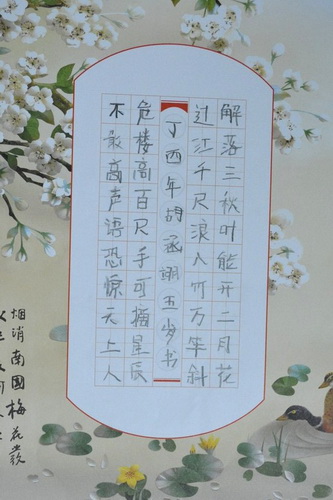 解落三秋叶能开二月花
过江千尺浪入竹万竿斜
丁酉年胡丞翊五岁书
危楼高百尺手可摘星辰
不敢高声语恐惊天上人
烟消南国梅花发